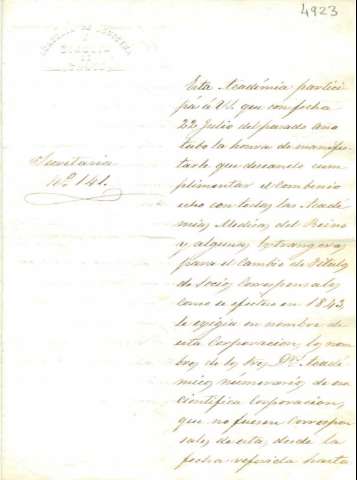 4923
ACADEMIA DE MEDICINA
Y
CIRUGIA
DE
Secretaria
Nº 141.
Esta Académia partici-
pá á VS. que con fecha
22 Julio del pasado año
tubo la honra de manifes-
tarle que deseando cum-
plimentar el Combenio
echo con todas las Acadé-
mias Medicas del Reino
y algunas Estrangeras
para el Cambio de Titulos
de Socios Corresponsales
como se efectuo en 1843,
le ecsigia en nombre de
esta Corporacion, los nom-
bres de los Sres. Drs. Acadé-
micos numerarios de esa
cientifica Corporacion,
que no fuesen Correspon-
sales de esta, desde la
fecha referida hasta